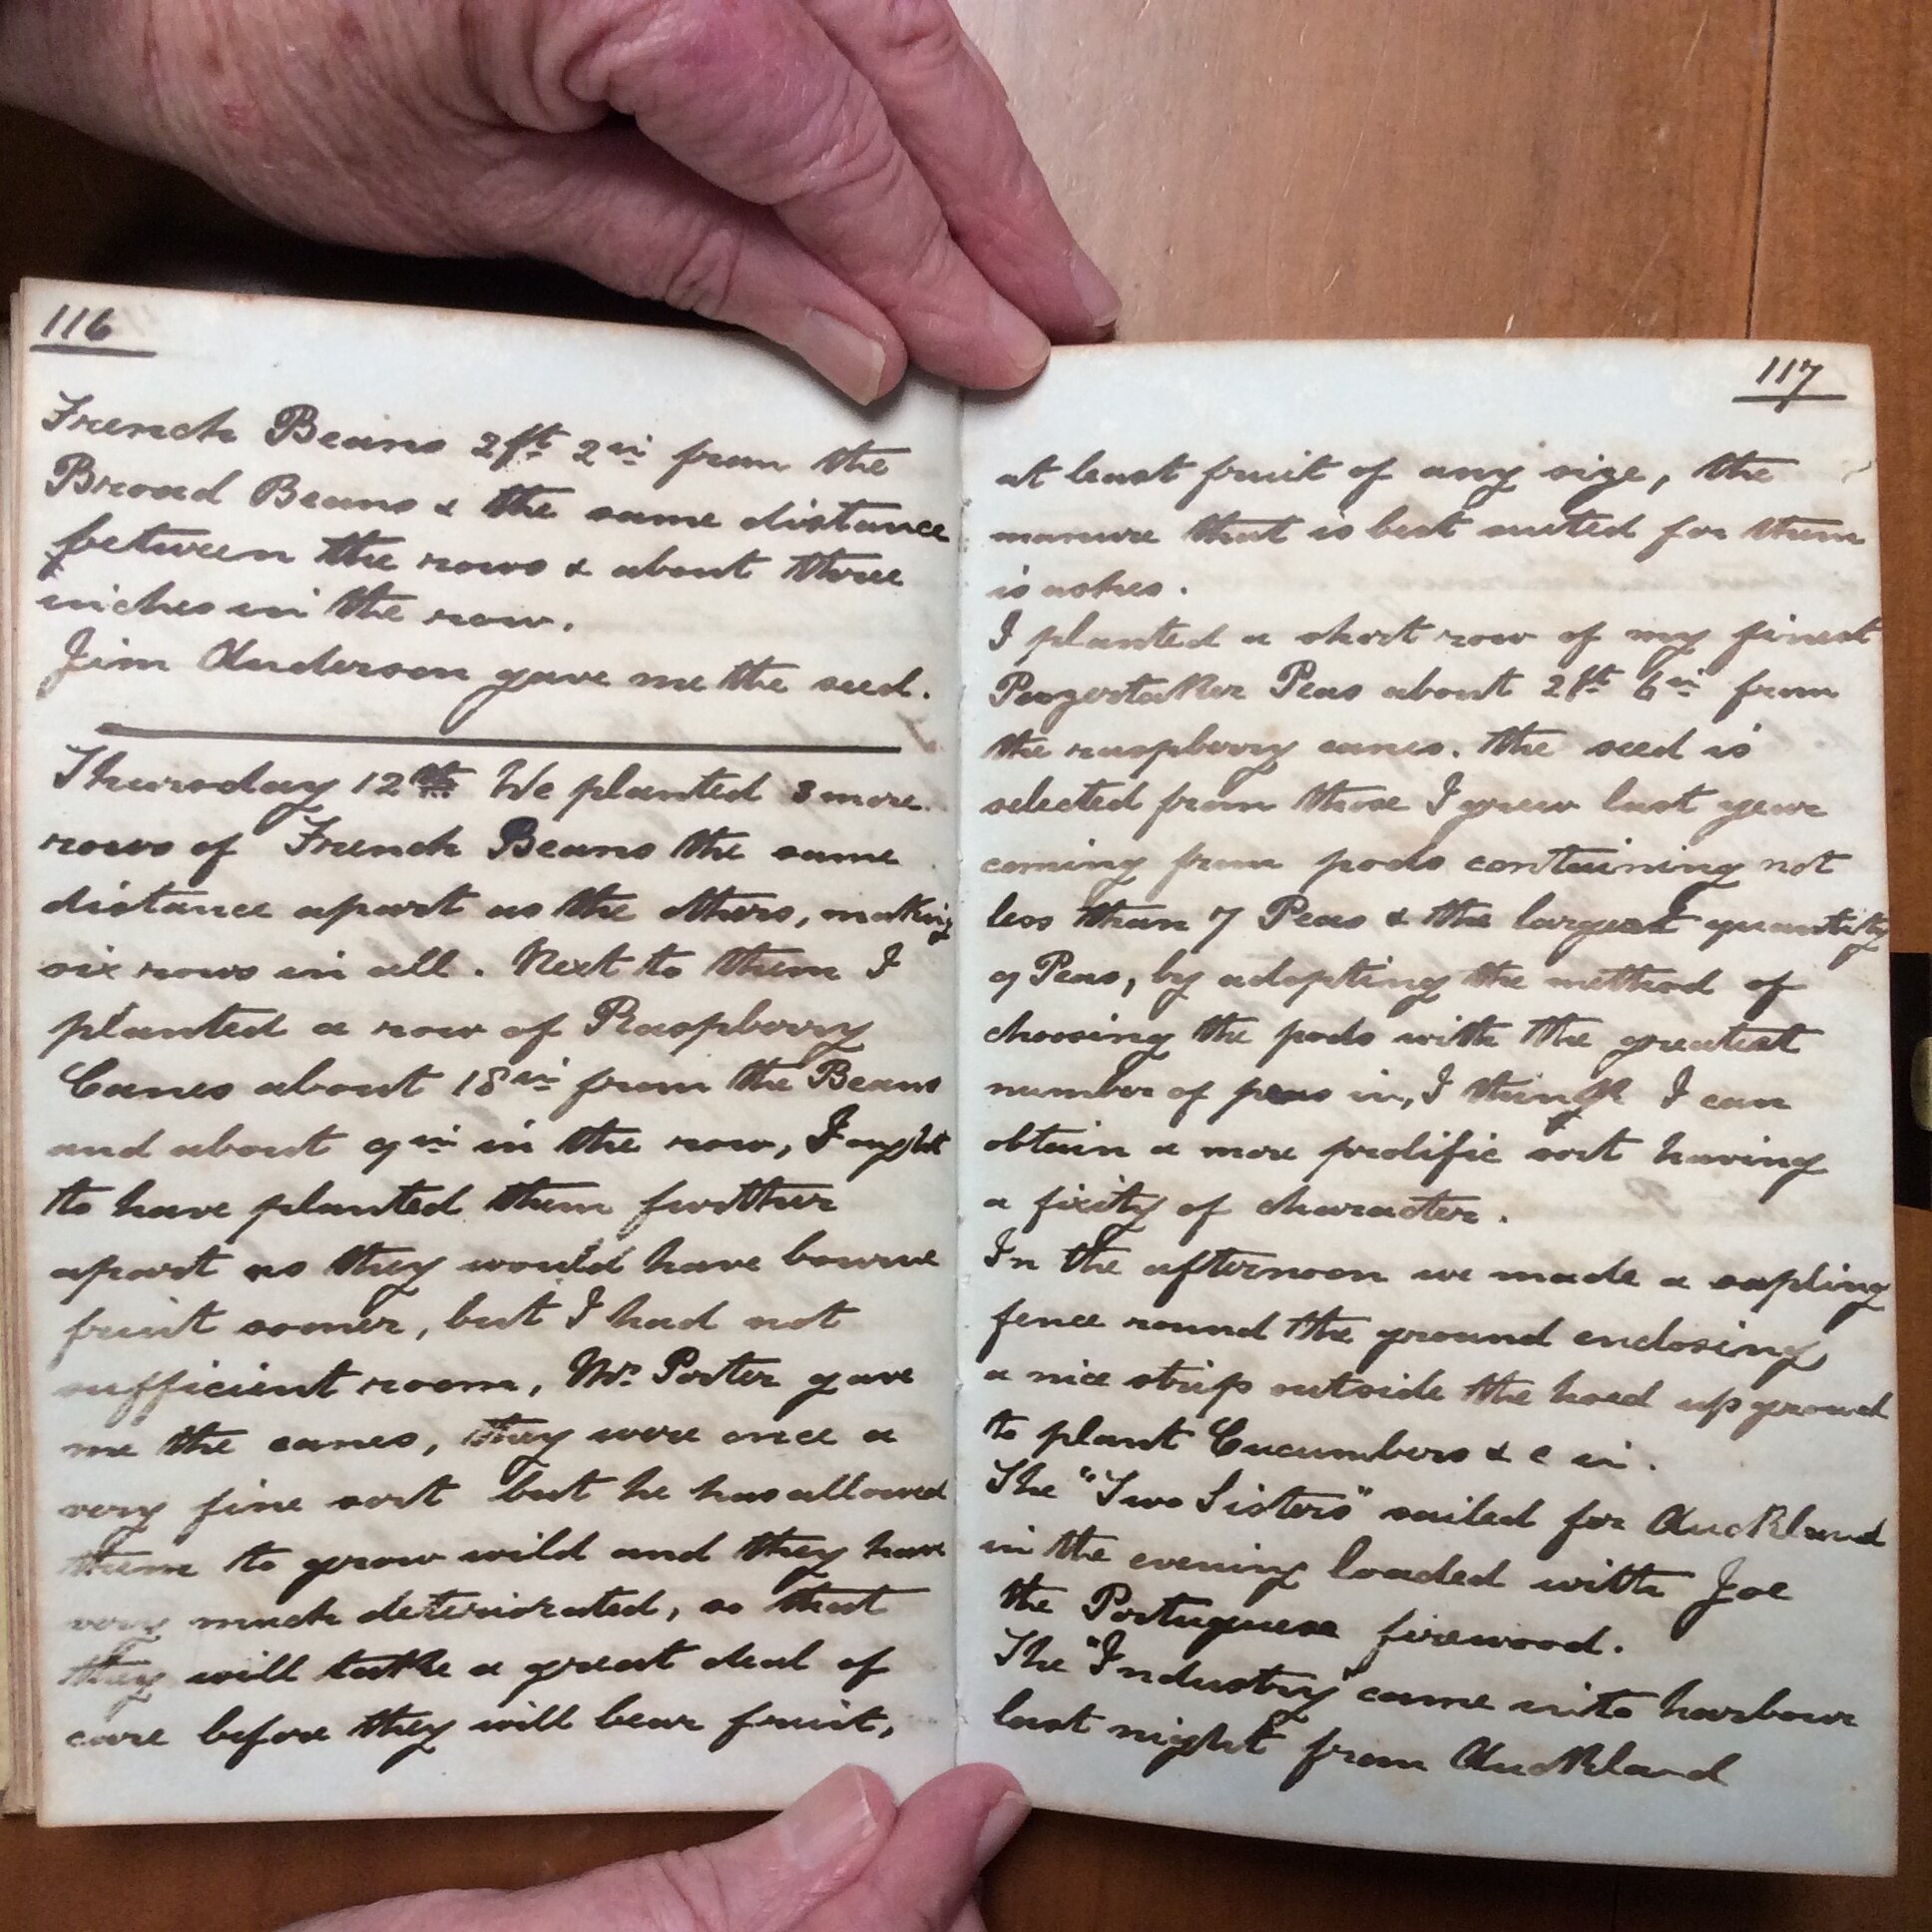 116
French Beans 2ft 2in from the
Broad Beans & the same distance
between the rows & about three
inches in the row.
Jim Anderson gave me the seed.
Thursday 12th We planted 3 more
rows of French Beans the same
distance apart as the others, making
six rows in all. Next to them I
planted a row of Raspberry
Canes about 18in from the Beans
and about 9in in the row, I ought
to have planted them further
apart as they would have bourne
fruit sooner, but I had not
sufficient room, Mr. Porter gave
me the canes, they were once a
very fine sort but he has allowed
them to grow wild and they have
very much deteriorated, so that
they will take a great deal of
care before they will bear fruit,
117
at least fruit of any size, the
manure that is best suited for them
is ashes.
I planted a short row of my finest
Peas about 2ft 6in from
the raspberry canes. the seed is
selected from those I grew last year
coming from pods containing not
less than 7 Peas & the largest quantity
of Peas, by adopting the method of
choosing the pods with the greatest
number of peas in, I think I can
obtain a more prolific sort having
a fixity of character.
In the afternoon we made a sapling
fence round the ground enclosing
a nice strip outside the hoed up ground
to plant Cucumbers & c in.
The "Two Sisters" sailed for Auckland
in the evening loaded with Joe
the Portuguese firewood.
The "Industry" came into harbour
last night from Auckland